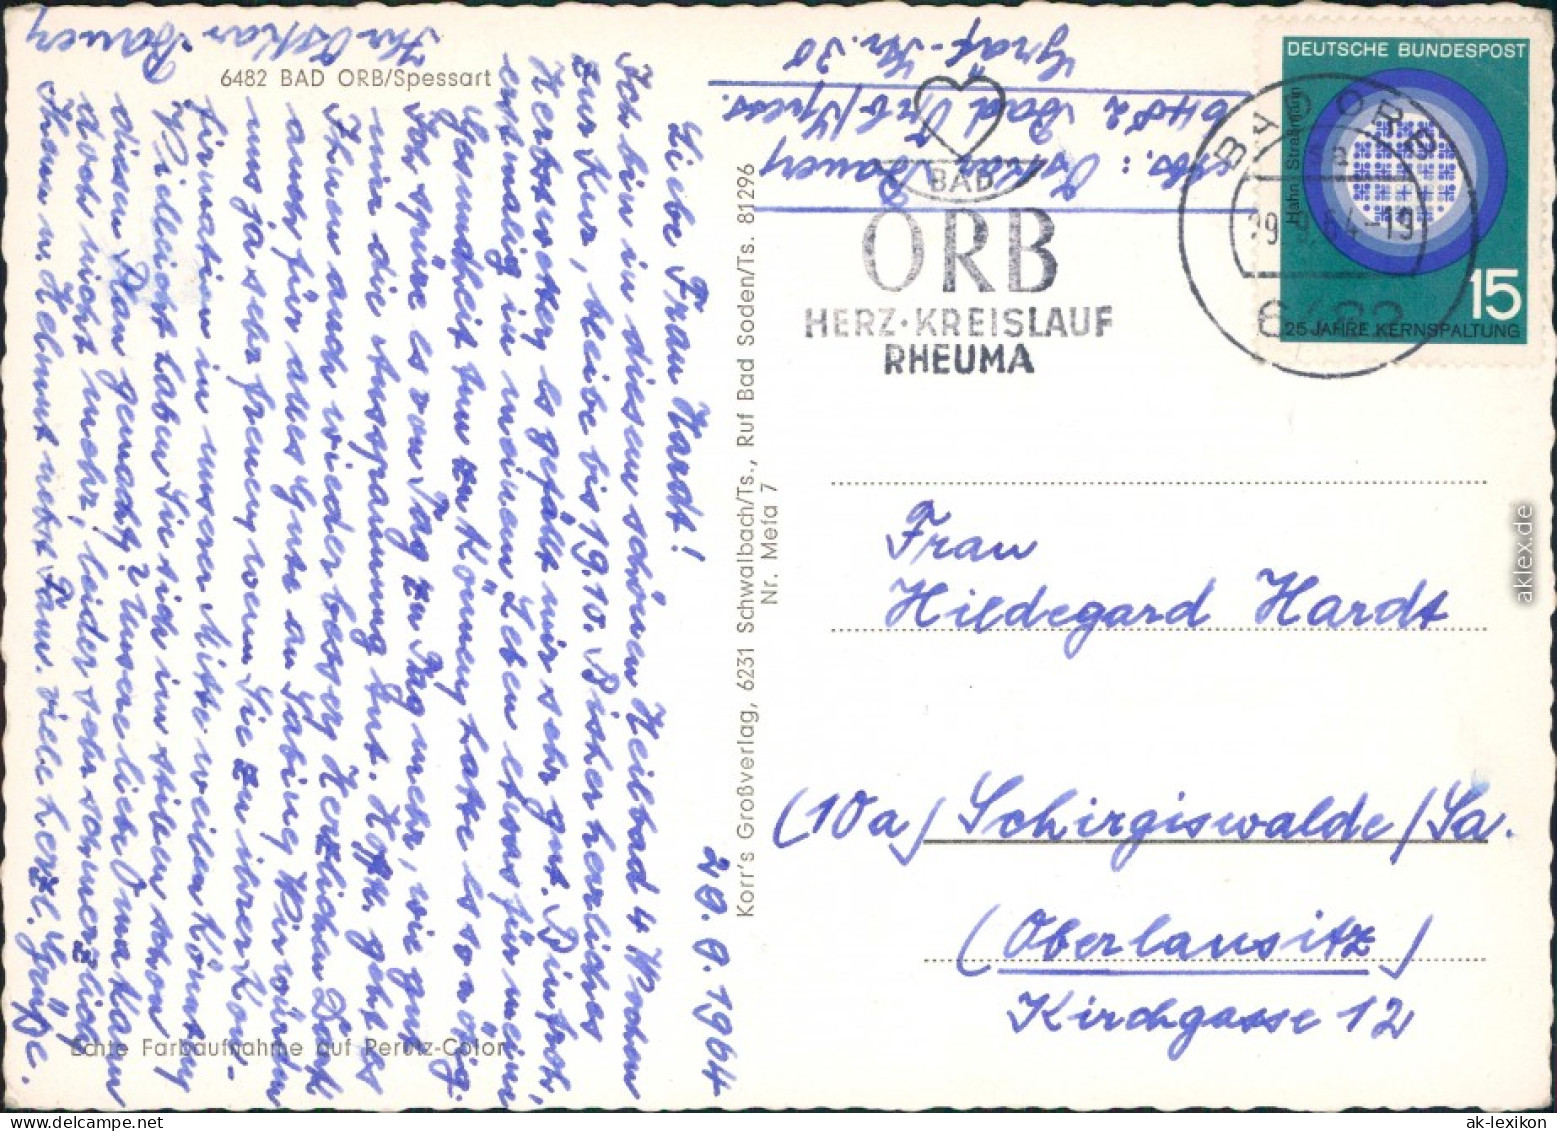 6482 BAD ORB/Spessart
29.9.1964
Liebe Frau Hardt!
Ich bin in diesem schönen Heilbad 4 Wochen
zur Kur, bleibe bis 19.10. Bisher herrliches
Herbstwetter, es gefällt mir sehr gut. Bin froh,
erstmalig in meinem Leben etwas für meine
Gesundheit tun zu können, hatte es so nötig.
Ich spüre es von Tag zu Tag mehr, wie gut
mir die Ausspannung tut. Hoff. geht es
Ihnen auch wieder besser, Herzlichen Dank
auch für alles Gute an Sabine, Wir würden
uns ja sehr freuen, wenn Sie zu ihrer Kon-
firmation in unserer Mitte weilen könnten,
Vielleicht haben Sie sich im stillen schon
diesen Plan gemacht? Unsere liebe Oma kann
doch nicht mehr, leider sehr schmerzlich
Ihnen u. Helmut nebst Fam. viele herzl. Grüße.
Ihr Oskar Bauer
Echte Farbaufnahme auf Perutz-Color
Korr's Großverlag, 6231 Schwalbach/Ts., Ruf Bad Soden/Ts. 81296
Nr. Mefa 7
Abs.: Oskar Bauer
6482 Bad Orb/Spess.
BAD
ORB
HERZ·KREISLAUF
RHEUMA
BAD ORB
29.9.64-19
6482
DEUTSCHE BUNDESPOST
Hahn Straßmann
15
25 JAHRE KERNSPALTUNG
Frau
Hildegard Hardt
(10a) Schirgiswalde/Sa.
(Oberlausitz)
Kirchgasse 12
aklex.de
ak-lexikon